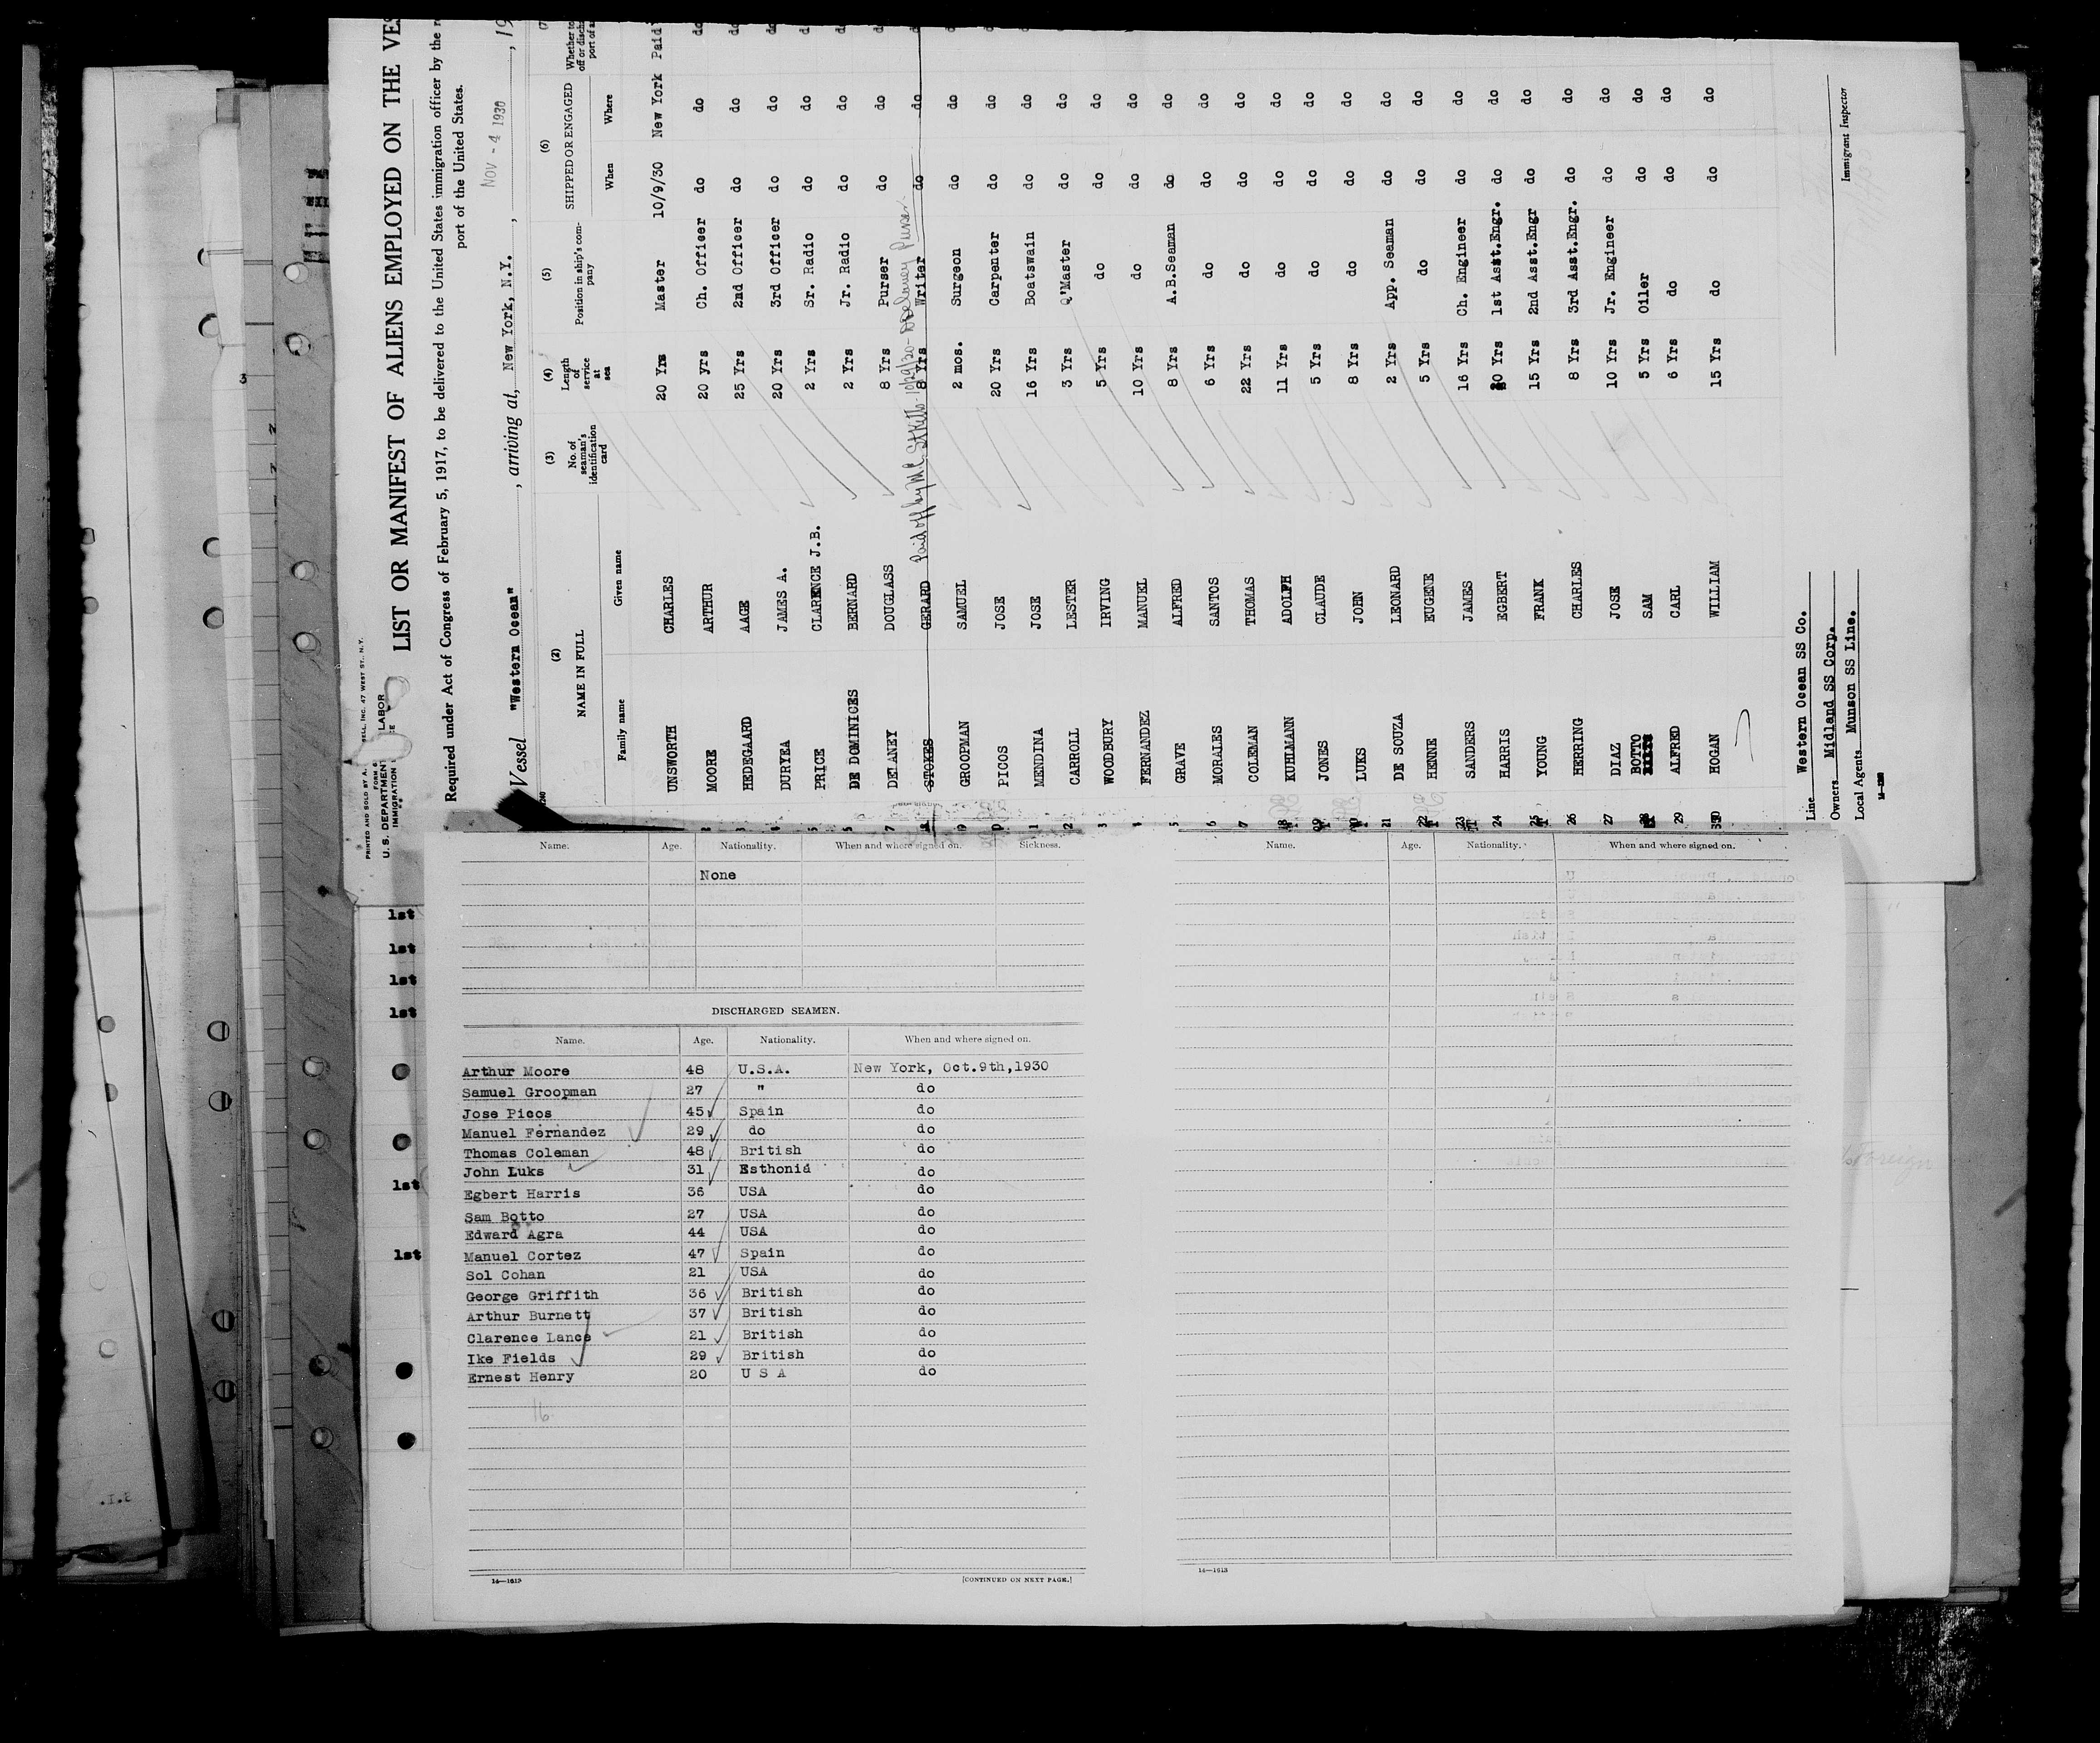 PRINTED AND SOLD BY A. SELL, INC. 47 WEST ST., N.Y.
FORM 6
U. S. DEPARTMENT LABOR
IMMIGRATION CE
LIST OR MANIFEST OF ALIENS EMPLOYED ON THE VES
Required under Act of Congress of February 5, 1917, to be delivered to the United States immigration officer by the r
port of the United States.
Vessel "Western Ocean" , arriving at, New York, N.Y. , NOV - 4 1930 , 19
(2) NAME IN FULL (3) No. of seaman's identification card (4) Length of service at sea (5) Position in ship's company (6) SHIPPED OR ENGAGED (7) Whether to
off or disch
port of a
Family name Given name When Where
UNSWORTH CHARLES 20 Yrs Master 10/9/30 New York Paid
2 MOORE ARTHUR 20 yrs Ch. Officer do do do
3 HEDEGAARD AAGE 25 Yrs 2nd Officer do do do
4 DURYEA JAMES A. 20 Yrs 3rd Officer do do do
5 PRICE CLARENCE J.B. 2 Yrs Sr. Radio do do do
DE DOMINICES BERNARD 2 Yrs Jr. Radio do do do
7 DELANEY DOUGLASS 8 Yrs Purser do do do
Paid off by M.C. St Kitts - 10/29/30 - D Delaney Purser.
8 STOKES GERARD 8 Yrs Writer do do do
9 GROOPMAN SAMUEL 2 mos. Surgeon do do do
0 PICOS JOSE 20 Yrs Carpenter do do do
1 MENDINA JOSE 16 Yrs Boatswain do do
2 CARROLL LESTER 3 Yrs Q'Master do do
3 WOODBURY IRVING 5 Yrs do do do
4 FERNANDEZ MANUEL 10 Yrs do do do
5 GRAVE ALFRED 8 Yrs A.B.Seaman do do
6 MORALES SANTOS 6 Yrs do do do
7 COLEMAN THOMAS 22 Yrs do do do
18 KUHLMANN ADOLPH 11 Yrs do do do
JONES CLAUDE 5 Yrs do do do
LUKS JOHN 8 Yrs do do do
21 DE SOUZA LEONARD 2 Yrs App. Seaman do do
22 HENNE EUGENE 5 Yrs do do do
23 SANDERS JAMES 16 Yrs Ch. Engineer do do
24 HARRIS EGBERT 20 Yrs 1st Asst.Engr. do do
25 YOUNG FRANK 15 Yrs 2nd Asst.Engr do do
26 HERRING CHARLES 8 Yrs 3rd Asst.Engr. do do
27 DIAZ JOSE 10 Yrs Jr. Engineer do do
28 BOTTO SAM 5 Yrs Oiler do do
29 ALFRED CARL 6 Yrs do do do
30 HOGAN WILLIAM 15 Yrs do do do
Line Western Ocean SS Co.
Owners Midland SS Corp.
Local Agents Munson SS Line.
Immigrant Inspector
Name. Age. Nationality. When and where signed on. Sickness.
None
DISCHARGED SEAMEN.
Name. Age. Nationality. When and where signed on.
Arthur Moore 48 U.S.A. New York, Oct.9th,1930
Samuel Groopman 27 " do
Jose Picos 45 Spain do
Manuel Fernandez 29 do do
Thomas Coleman 48 British do
John Luks 31 Esthonia do
Egbert Harris 36 USA do
Sam Botto 27 USA do
Edward Agra 44 USA do
Manuel Cortez 47 Spain do
Sol Cohan 21 USA do
George Griffith 36 British do
Arthur Burnett 37 British do
Clarence Lance 21 British do
Ike Fields 29 British do
Ernest Henry 20 U S A do
16
14—1613 [CONTINUED ON NEXT PAGE.]
Name. Age. Nationality. When and where signed on.
14—1613
1st
1st
1st
1st
1st
1st
Foreign